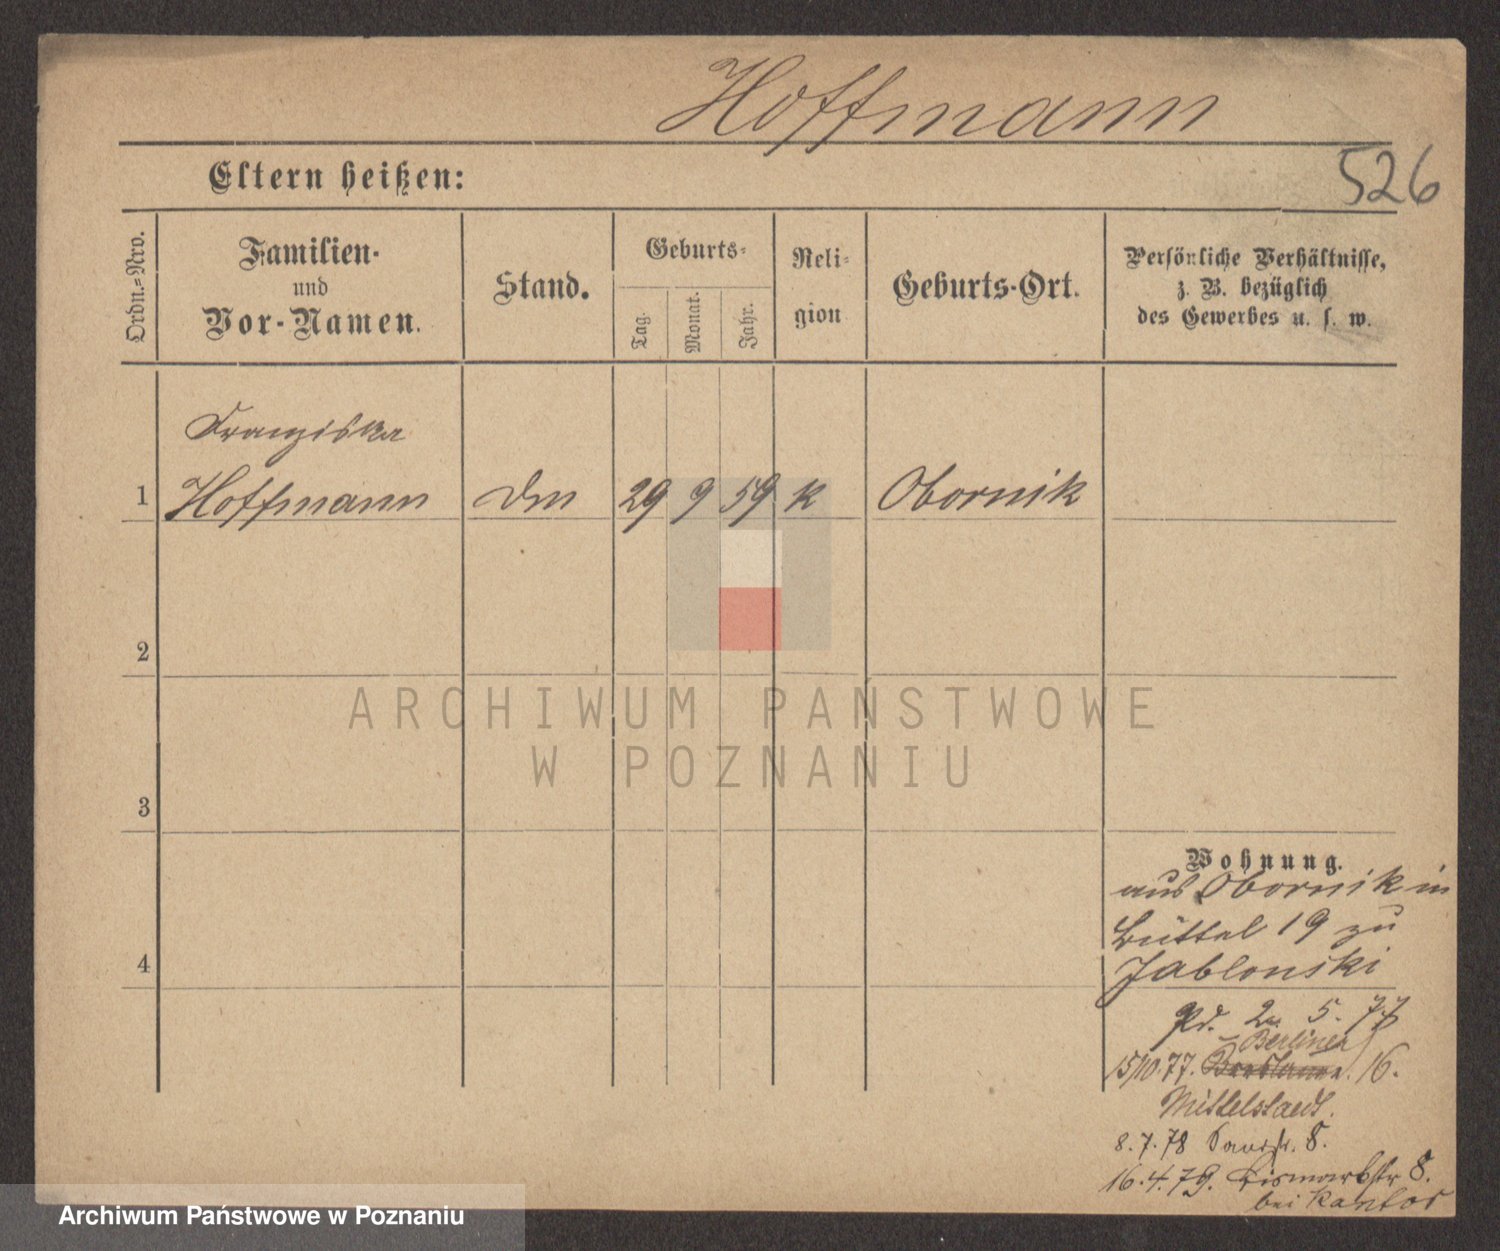 Hoffmann
526
Eltern heißen:
Ordn.=Nro.
Familien-
und
Vor-Namen.
Stand.
Geburts-
Tag.
Monat.
Jahr.
Reli-
gion
Geburts-Ort.
Persönliche Verhältnisse,
z. B. bezüglich
des Gewerbes u. s. w.
Franziska
1 Hoffmann 29 9 59 k Obornik
2
3
4
ARCHIWUM PAŃSTWOWE
W POZNANIU
Wohnung.
aus Obornik in
Büttel 19 zu
Jablonski
2. 5. 77
Berliner
15/10.77. 16.
Mittelstaedt.
8.7.78 8.
16.4.79. Bismarkstr 8.
bei Kantor
Archiwum Państwowe w Poznaniu